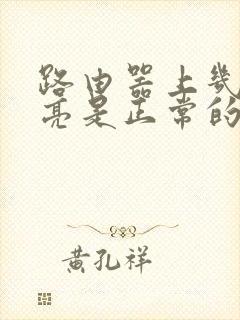 路由器上几
亮是正常的
黄孔祥